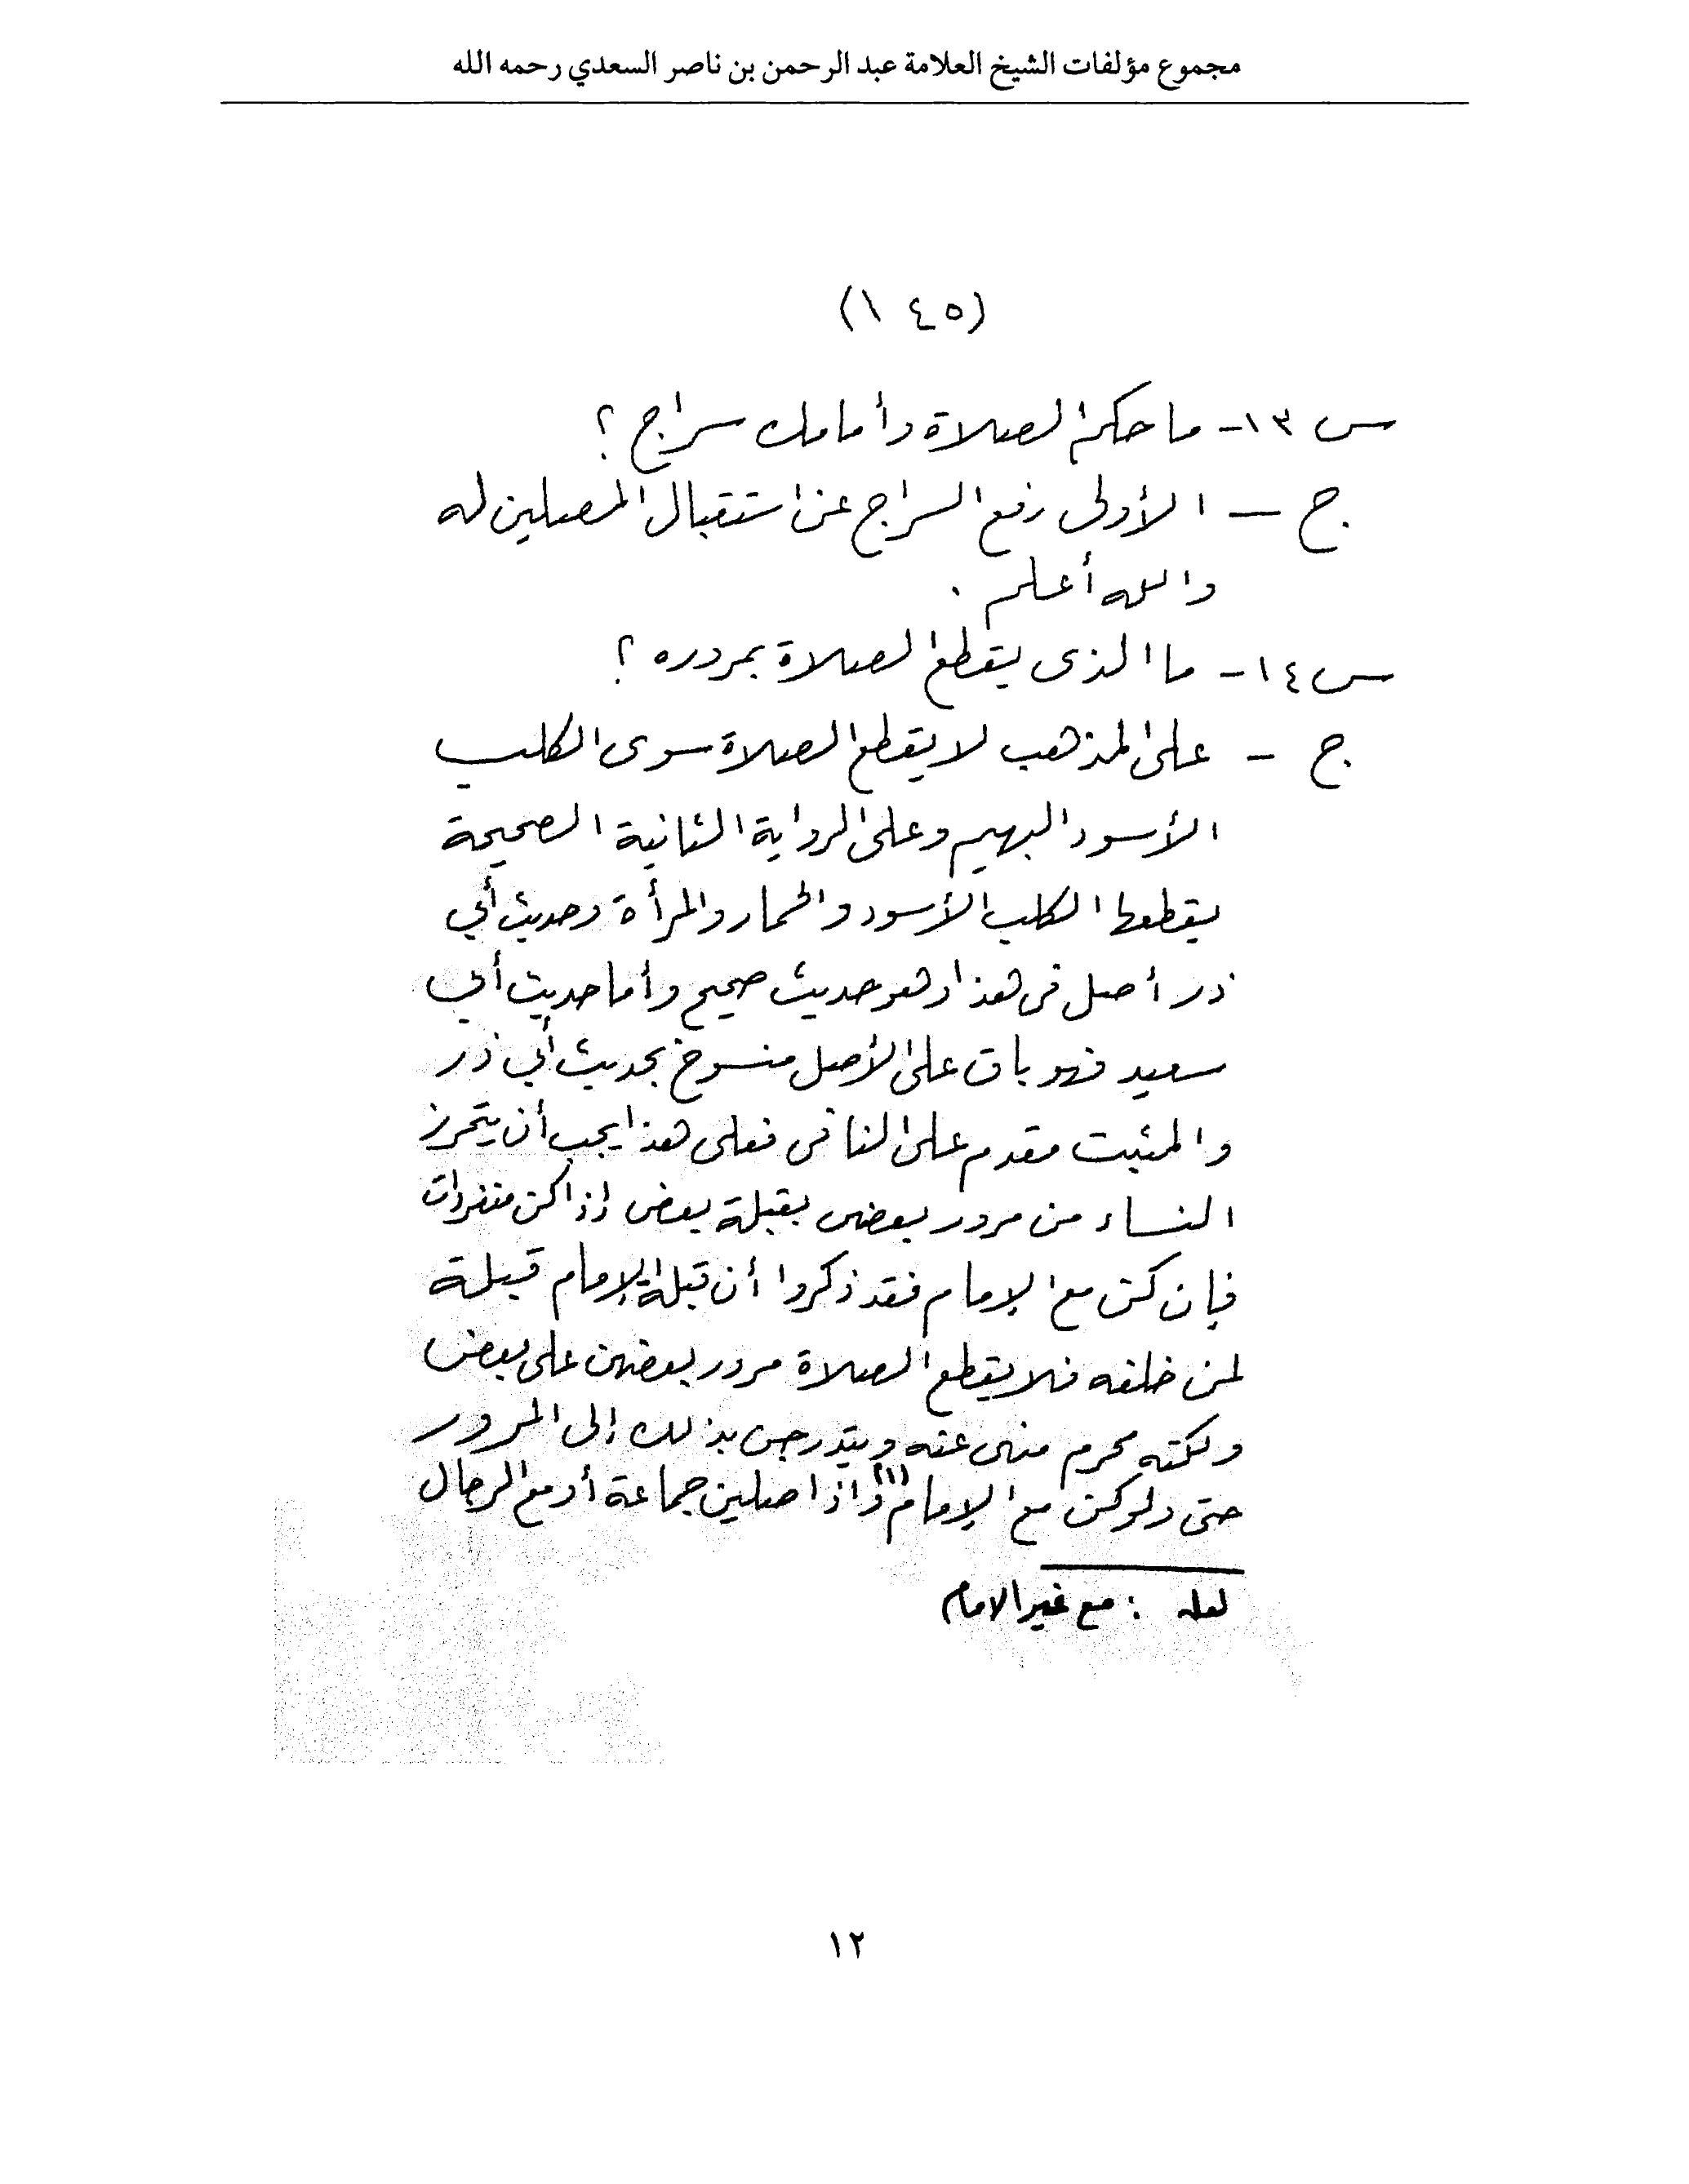 مجموع مؤلفات الشيخ العلامة عبد الرحمن بن ناصر السعدي رحمه الله
(١٤٥)
س ١٣- ما حكم الصلاة وأمامك سراج ؟
ج - الأولى رفع السراج عن استقبال المصلين له
والله أعلم .
س ١٤- ما الذى يقطع الصلاة بمروره ؟
ج - على المذهب لا يقطع الصلاة سوى الكلب
الأسود البهيم وعلى الرواية الثانية الصحيحة
يقطعها الكلب الأسود والحمار والمرأة وحديث أبي
ذر أصل فى هذا وهو حديث صحيح وأما حديث أبي
سعيد فهو باق على الأصل منسوخ بحديث أبي ذر
والمثبت مقدم على النافى فعلى هذا يجب أن يتحرز
النساء من مرور بعضهن بقبلة بعض إذا كن منفردات
فإن كن مع الإمام فقد ذكروا أن قبلة الإمام قبلة
لمن خلفه فلا يقطع الصلاة مرور بعضهن على بعض
ولكنه محرم منهى عنه ويتدرجن بذلك إلى المرور
حتى ولو كن مع الإمام(١) وإذا صلين جماعة أو مع الرجال
لعله : مع غير الامام
١٢